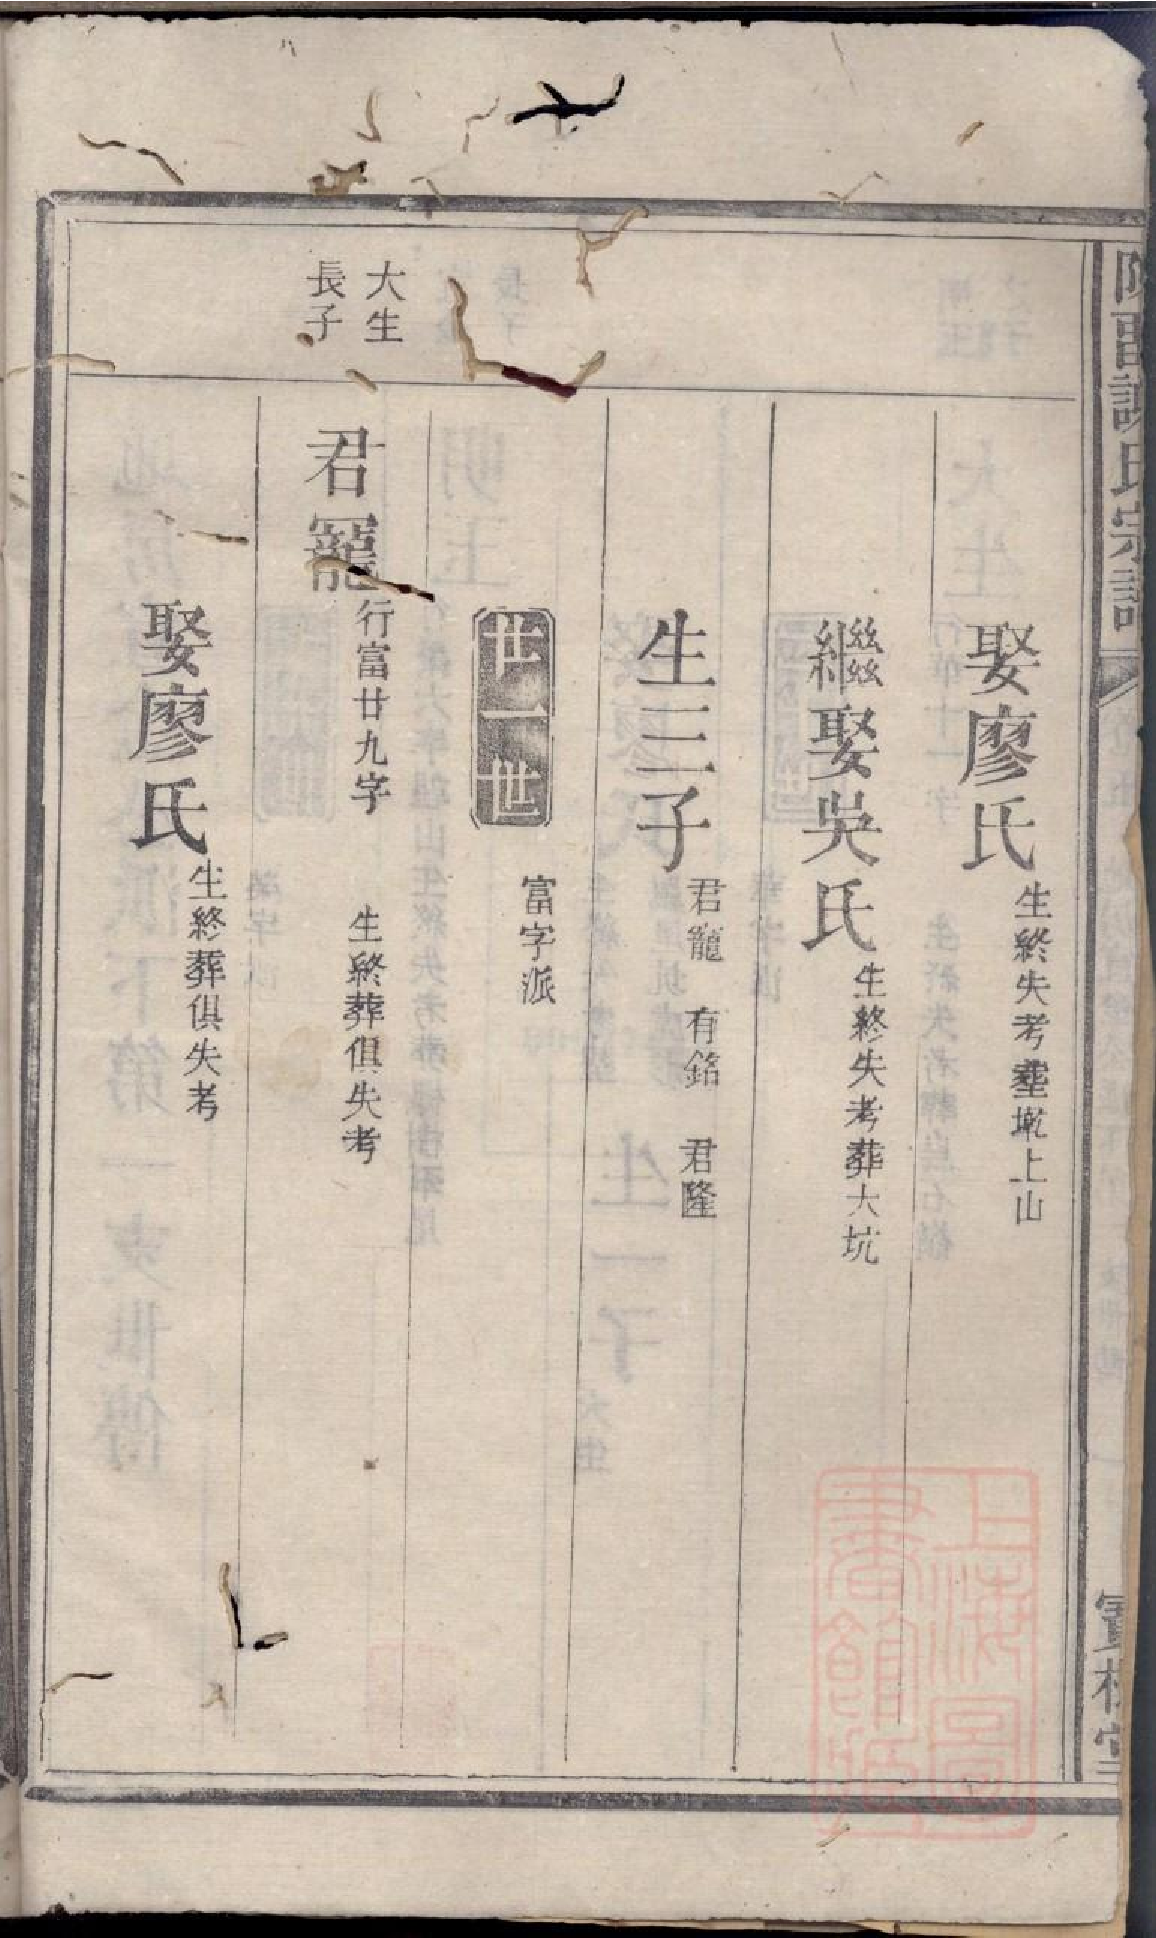 謝氏宗譜
娶廖氏 生終失考葬墘上山
繼娶吳氏 生終失考葬大坑
生三子 君寵 有銘 君隆
世一世 富字派
大生長子
君寵 行富廿九字 生終葬俱失考
娶廖氏 生終葬俱失考
上海圖書館藏